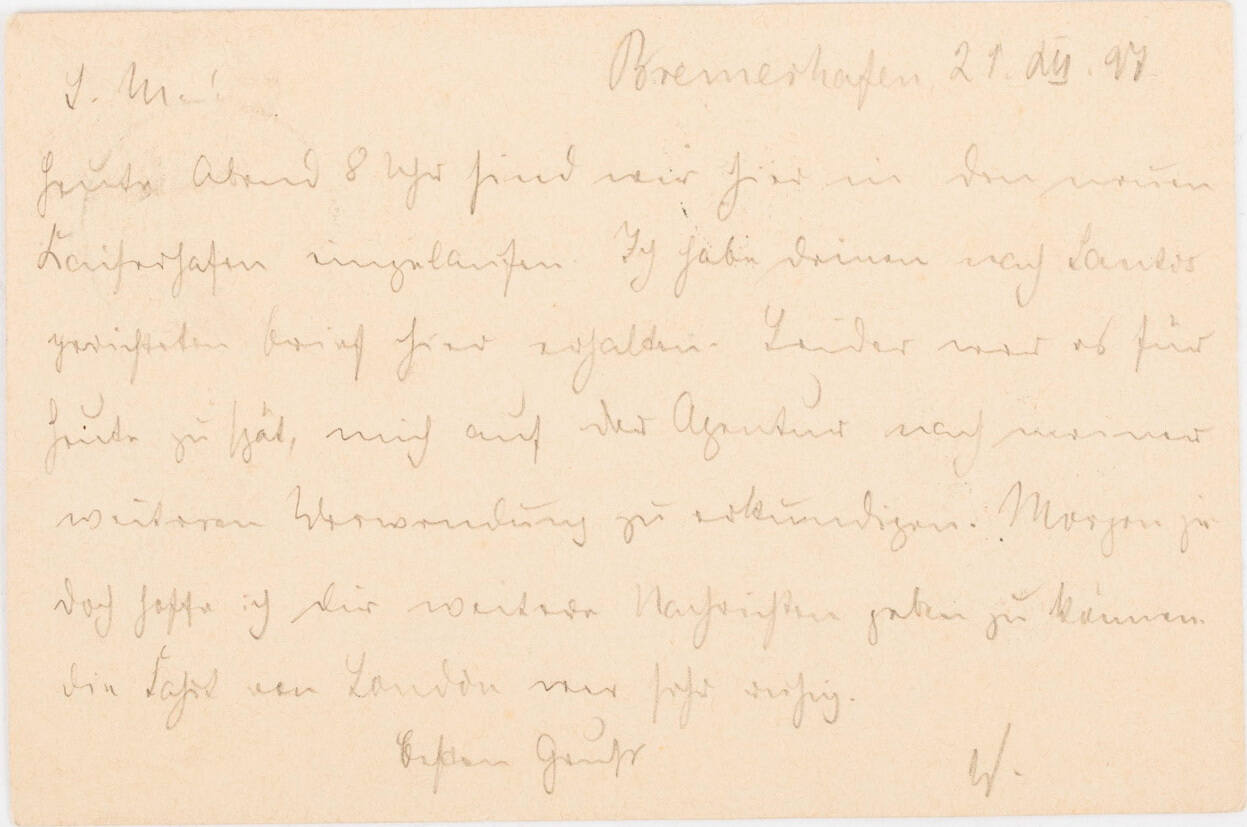 Bremerhafen, 21. XII. 97
L. M.!
Heute Abend 8 Uhr sind wir hier in den neuen
Kaiserhafen eingelaufen. Ich habe deinen nach Santos
gerichteten Brief hier erhalten. Leider war es für
heute zu spät, mich auf der Agentur nach meiner
weiteren Verwendung zu erkundigen. Morgen je
doch hoffe ich dir weitere Nachrichten geben zu können.
die Fahrt von London war sehr ruhig.
Besten Gruss
W.